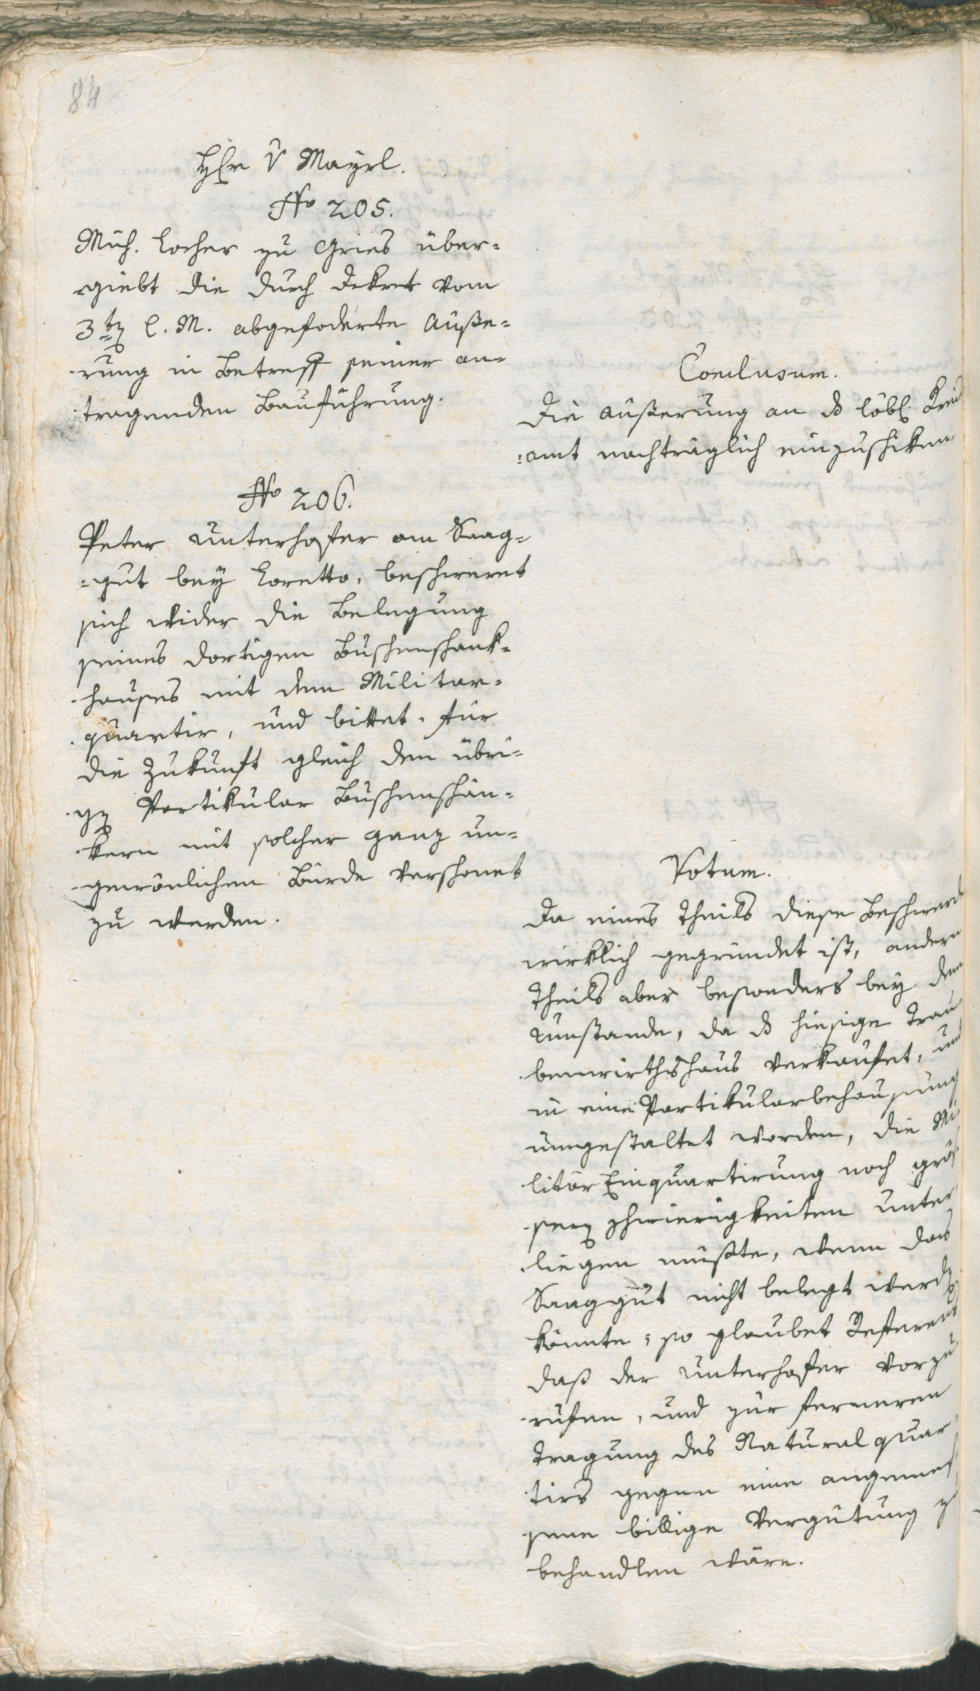 84
Hr v Mayrl.
No 205.
Mich. Locher zu Gries über-
giebt die durch Dekret vom
3ten l. M. abgefoderte Äuße-
rung in Betreff seiner an-
tragenden Bauführung.
Conclusum.
Die Äußerung an d löbl. Kreis
amt nachträglich einzuschiken.
No 206.
Peter Unterhofer am Saag-
gut bey Loretto, beschweret
sich wider die Belegung
seines dortigen Buschenschank-
hauses mit dem Militar-
quartir, und bittet für
die Zukunft gleich den übri-
gen Partikular Buschenschän-
kern mit solcher ganz un-
gewönlichen Bürde verschonet
zu werden.
Votum.
Da eines Theils diese Beschwerde
wirklich gegründet ist, andern
Theils aber besonders bey dem
Umstande, da d hiesige Trau
benwirthshaus verkaufet, und
in eine Partikularbehausung
umgestaltet worden, die Mi
litär Einquartirung noch grös
sern Schwierigkeiten unter
liegen müßte, wenn das
Saaggut nicht belegt werden
könnte; so glaubet Referens
daß der Unterhofer vorzu
rufen, und zur ferneren
Tragung des Naturalquar
tirs gegen eine angemes
sene billige Vergütung zu
behandlen wäre.